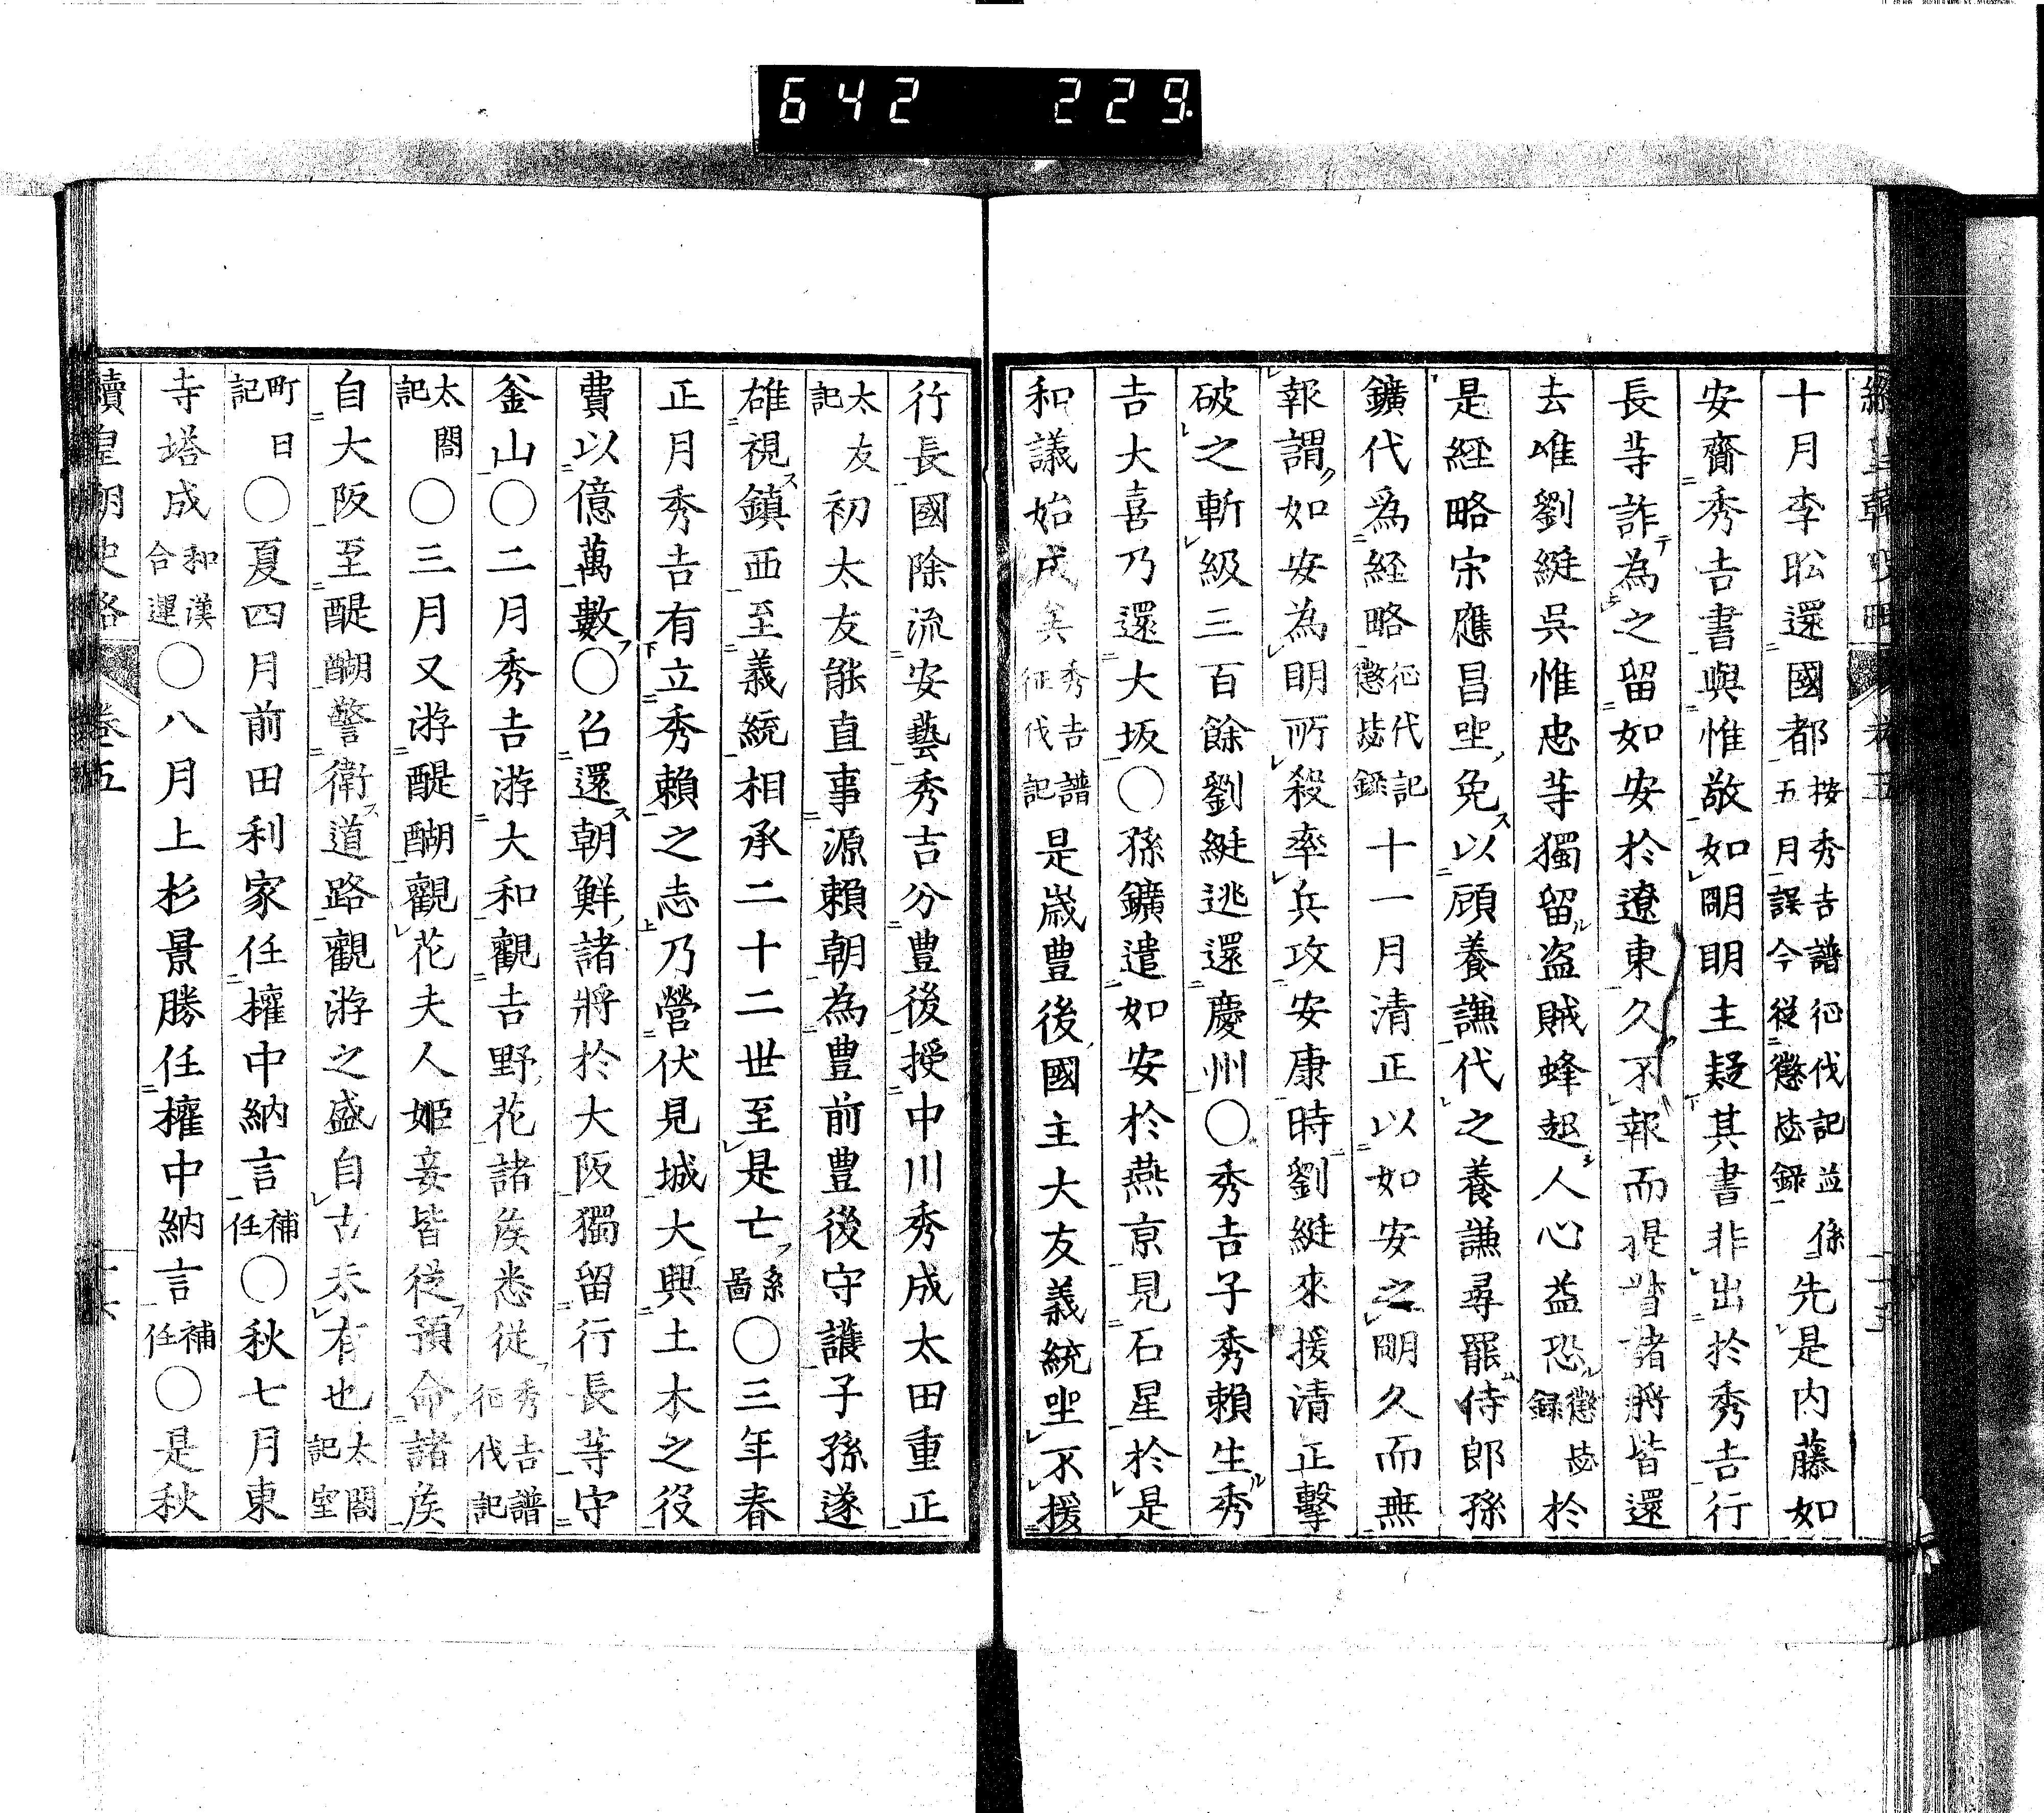 642 229
十月李昖還國都按秀吉譜征伐記並係五月誤今從懲毖錄先是内藤如
安齎秀吉書與惟敬如明明主疑其書非出於秀吉行
長等詐為之留如安於遼東久不報而提督諸將皆還
去唯劉綎吳惟忠等獨留盗賊蜂起人心益恐懲毖錄於
是經略宋應昌坐免以顧養謙代之養謙尋罷侍郎孫
鑛代爲經略征伐記懲毖錄十一月清正以如安之明久而無
報謂如安為明所殺率兵攻安康時劉綎來援清正擊
破之斬級三百餘劉綎逃還慶州○秀吉子秀賴生秀
吉大喜乃還大坂○孫鑛遣如安於燕京見石星於是
和議始成矣秀吉譜征伐記是歲豊後國主大友義統坐不援
行長國除流安藝秀吉分豊後授中川秀成太田重正
大友記初大友能直事源賴朝為豊前豊後守護子孫遂
雄視鎮西至義統相承二十二世至是亡系圖○三年春
正月秀吉有立秀賴之志乃營伏見城大興土木之役
費以億萬數○召還朝鮮諸將於大阪獨留行長等守
釜山○二月秀吉游大和觀吉野花諸侯悉從秀吉譜征伐記
太閤記○三月又游醍醐觀花夫人姬妾皆從預命諸侯
自大阪至醍醐警衛道路觀游之盛自古未有也太閤記室
町日記○夏四月前田利家任權中納言補任○秋七月東
寺塔成和漢合運○八月上杉景勝任權中納言補任○是秋
續皇朝史略 卷五